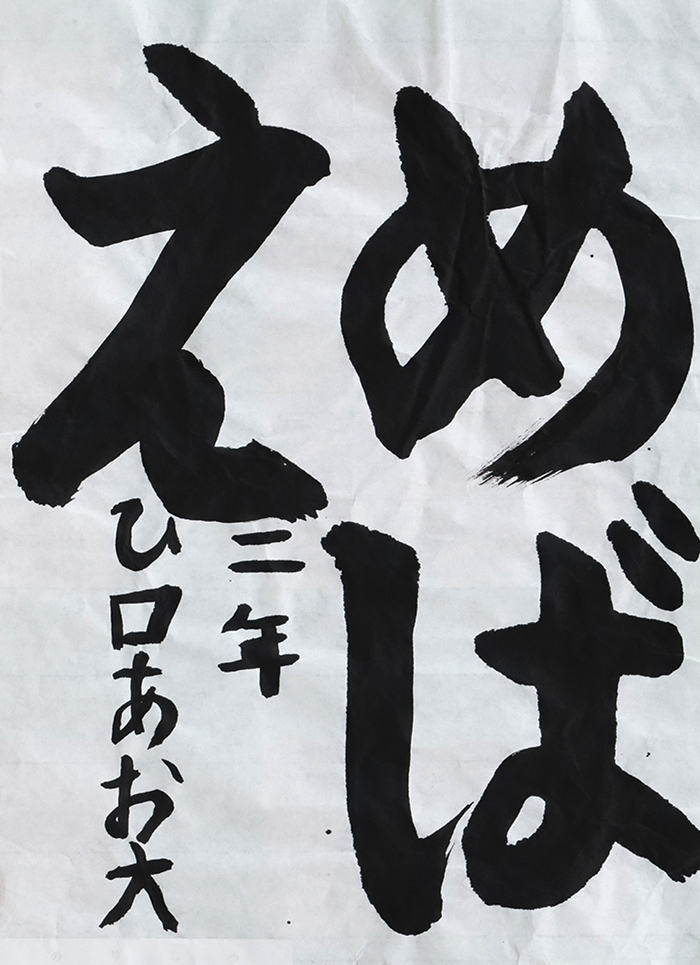 めば
え
二年
ひ口あお大